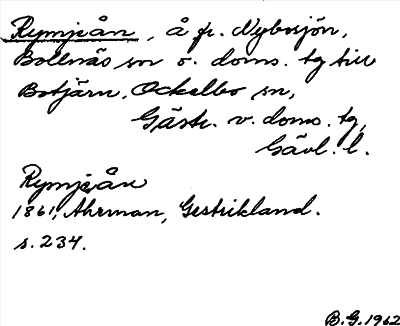 Rymjeån, å fr. Nybosjön,
Bollnäs sn o. doms. tg till
Botjärn. Ockelbo sn,
Gästr. v. doms. tg,
Gävl. l.
Rymjeån
1861, Ahrman, Gestrikland.
s. 234.
B.G. 1962